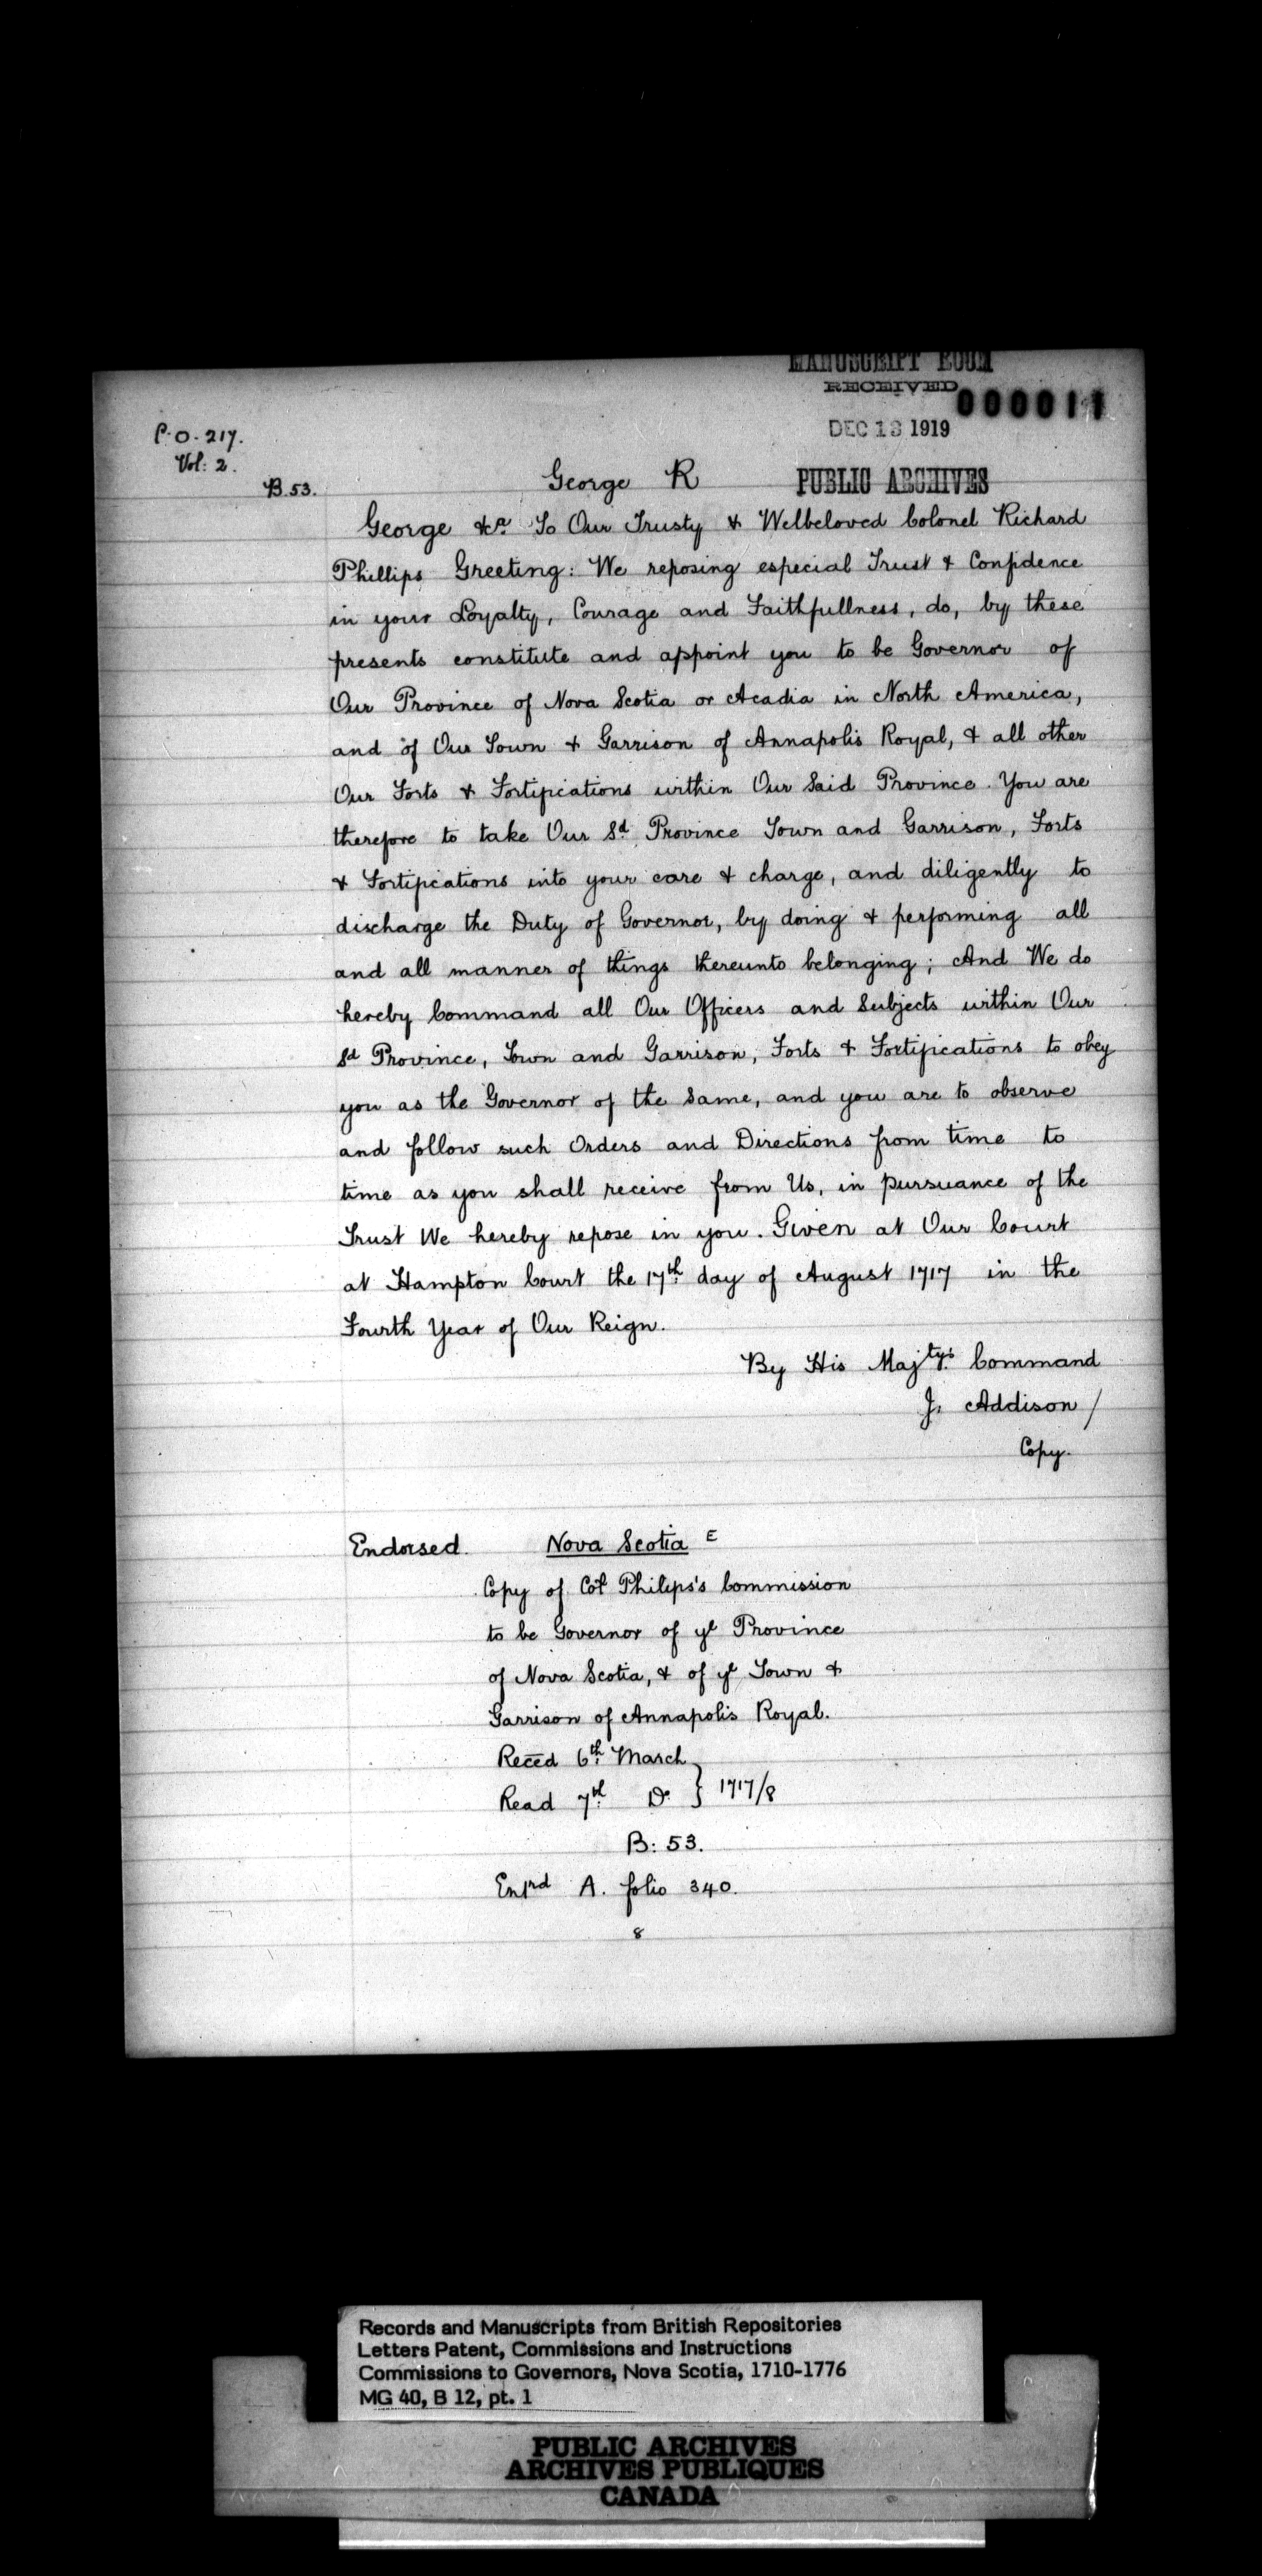 MANUSCRIPT ROOM
RECEIVED
000011
DEC 13 1919
PUBLIC ARCHIVES
C.O. 217.
Vol: 2.
B. 53.
George R
George &ca. To Our Trusty & Welbeloved Colonel Richard
Phillips Greeting: We reposing especial Trust & Confidence
in your Loyalty, Courage and Faithfullness, do, by these
presents constitute and appoint you to be Governor of
Our Province of Nova Scotia or Acadia in North America,
and of Our Town & Garrison of Annapolis Royal, & all other
Our Forts & Fortifications within Our Said Province. You are
therefore to take Our Sd. Province Town and Garrison, Forts
& Fortifications into your care & charge, and diligently to
discharge the Duty of Governor, by doing & performing all
and all manner of things thereunto belonging; And We do
hereby Command all Our Officers and Subjects within Our
Sd Province, Town and Garrison, Forts & Fortifications to obey
you as the Governor of the Same, and you are to observe
and follow such Orders and Directions from time to
time as you shall receive from Us, in pursuance of the
Trust We hereby repose in you. Given at Our Court
at Hampton Court the 17th. day of August 1717 in the
Fourth Year of Our Reign.
By His Majtys. Command
J. Addison /
Copy.
Endorsed. Nova Scotia E
Copy of Col Philips's Commission
to be Governor of ye Province
of Nova Scotia, & of ye Town &
Garrison of Annapolis Royal.
Reced 6th. March
Read 7th. Do. } 1717/8
B: 53.
Entrd A. folio 340.
8
Records and Manuscripts from British Repositories
Letters Patent, Commissions and Instructions
Commissions to Governors, Nova Scotia, 1710-1776
MG 40, B 12, pt. 1
PUBLIC ARCHIVES
ARCHIVES PUBLIQUES
CANADA